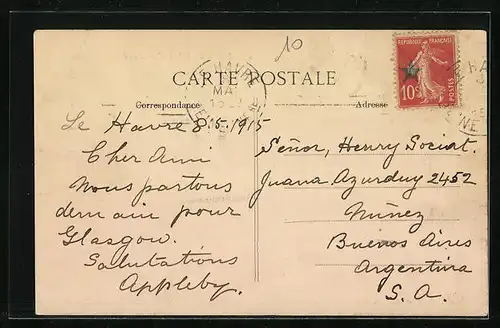 10
CARTE POSTALE
Correspondance
Adresse
REPUBLIQUE FRANÇAISE
10c
POSTES
HAVRE
Le Havre 8.5.1915
Cher Ami
Nous partons
demain pour
Glasgow.
Salutations
Appleby.
Señor, Henry Sociat.
Juana Azurduy 2452
Núnez
Buenos Aires
Argentina
S. A.